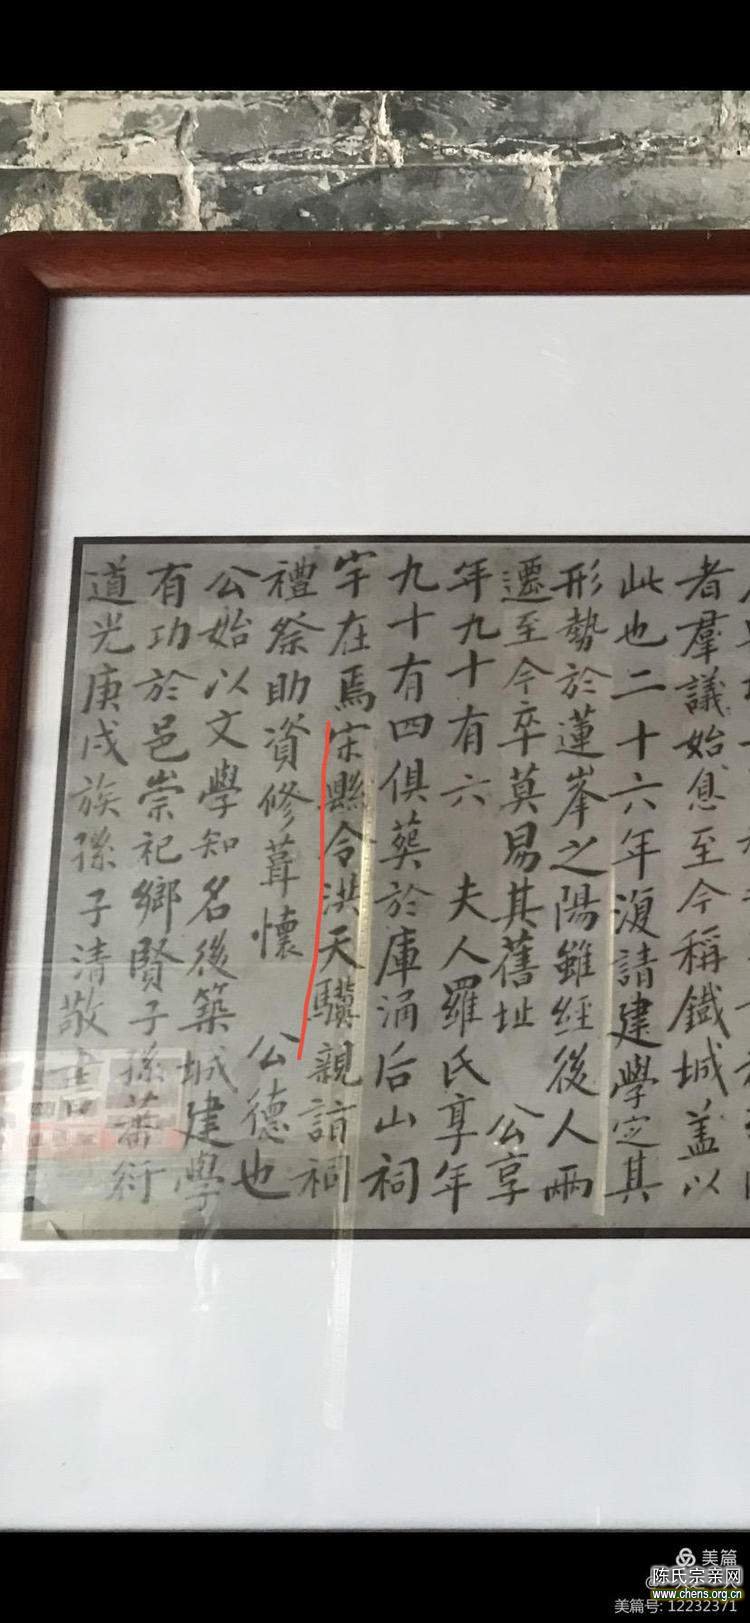 者羣議始息至今稱鐵城蓋以
此也二十六年復請建學定其
形勢於蓮峯之陽雖經後人兩
遷至今卒莫易其舊址 公享
年九十有六 夫人羅氏享年
九十有四俱葬於庫涌后山祠
宇在焉宋縣令洪天驥親詣祠
禮祭助資修葺懷 公德也
公始以文學知名後築城建學
有功於邑崇祀鄉賢子孫蕃衍
道光庚戌族孫子清敬書
美篇
陈氏宗亲网
www.chens.org.cn
美篇号: 12232371